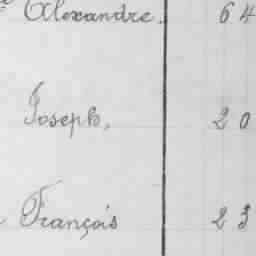 Alexandre. 64
Joseph, 20
François 23